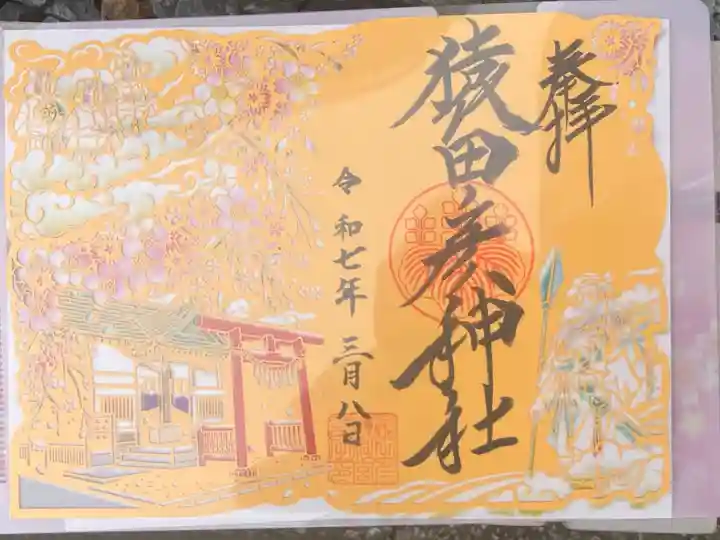 奉拝
猿田彦神社
令和七年 三月八日